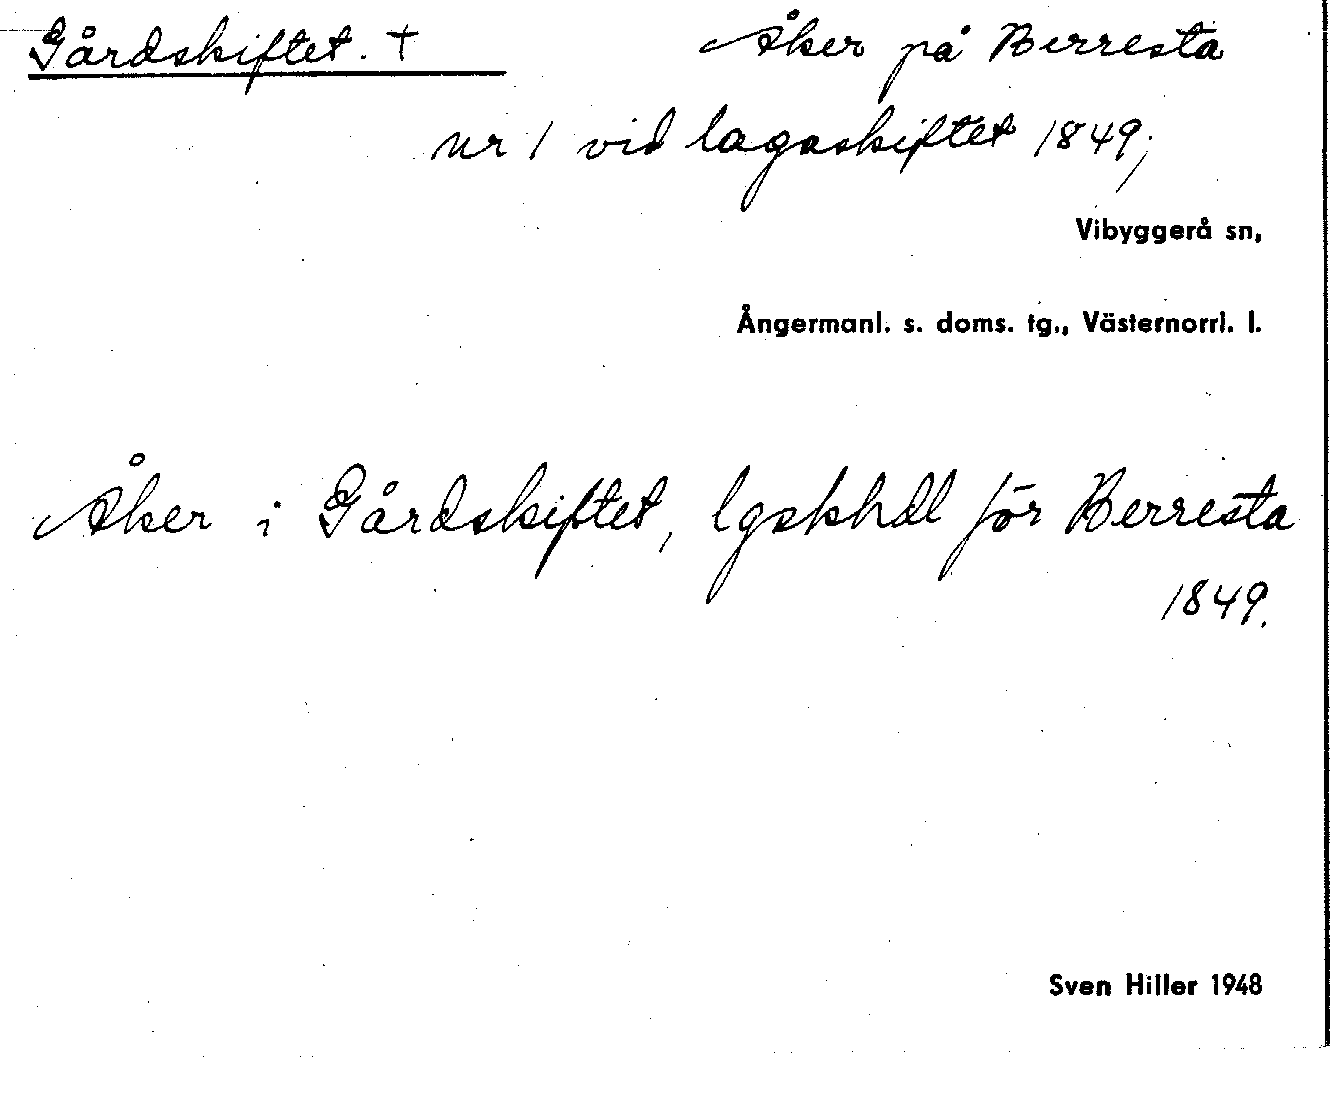 Gårdskiftet. † Åker på Berresta
nr 1 vid lagaskiftet 1849;
Vibyggerå sn,
Ångermanl. s. doms. tg., Västernorrl. l.
Åker i Gårdskiftet, lgskhdl för Berresta
1849.
Sven Hiller 1948